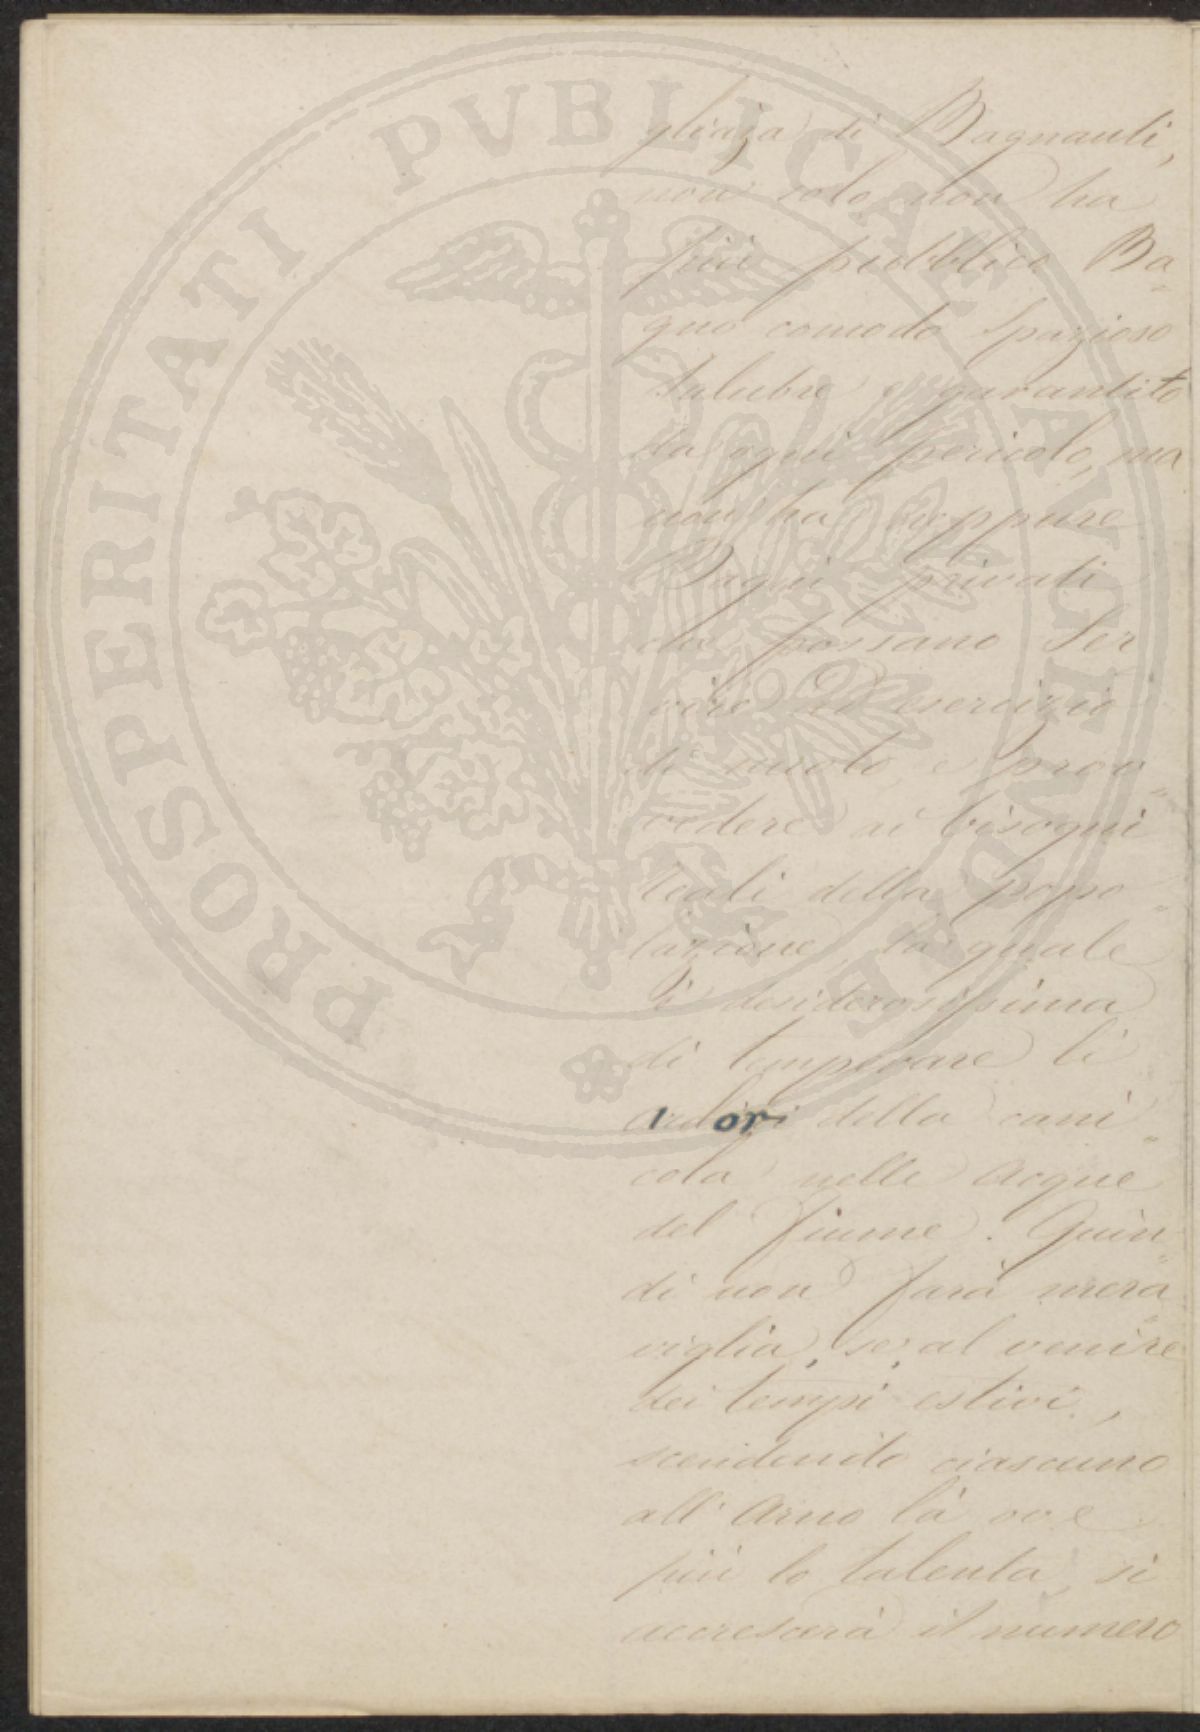 PROSPERITATI PVBLICAE AVGENDAE
gliaza di Bagnanti,
non solo non ha
più pubblico Ba
gno comodo Spazioso
Salubre e garantito
da ogni pericolo, ma
non ha neppure
Bagni privati
che possano Ser
vire ad esercizio
di nuoto, e prov
vedere ai bisogni
locali della popo
lazione, la quale
è desiderosissima
di temperare li
ardori della cani
cola nelle acque
del fiume. Quin
di non farà mera
viglia, se, al venire
dei tempi estivi,
scendendo ciascuno
all'Arno là ove
più lo talenta, si
accrescerà il numero